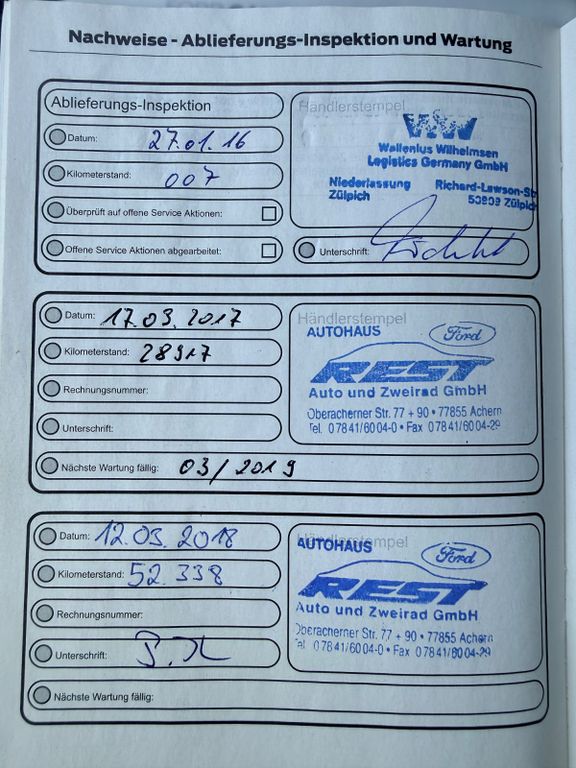 Nachweise - Ablieferungs-Inspektion und Wartung
Ablieferungs-Inspektion
Datum: 27.01.16
Kilometerstand: 007
Überprüft auf offene Service Aktionen:
Offene Service Aktionen abgearbeitet:
Händlerstempel
WW
Wallenius Wilhelmsen
Logistics Germany GmbH
Niederlassung Richard-Lawson-Str
Zülpich 53909 Zülpich
Unterschrift:
Datum: 17.03.2017
Kilometerstand: 28917
Rechnungsnummer:
Unterschrift:
Nächste Wartung fällig: 03/2019
Händlerstempel
AUTOHAUS Ford
REST
Auto und Zweirad GmbH
Oberacherner Str. 77 + 90 • 77855 Achern
Tel. 07841/6004-0 • Fax 07841/6004-29
Datum: 12.03.2018
Kilometerstand: 52.338
Rechnungsnummer:
Unterschrift:
Nächste Wartung fällig:
Händlerstempel
AUTOHAUS Ford
REST
Auto und Zweirad GmbH
Oberacherner Str. 77 + 90 • 77855 Achern
Tel. 07841/6004-0 • Fax 07841/6004-29